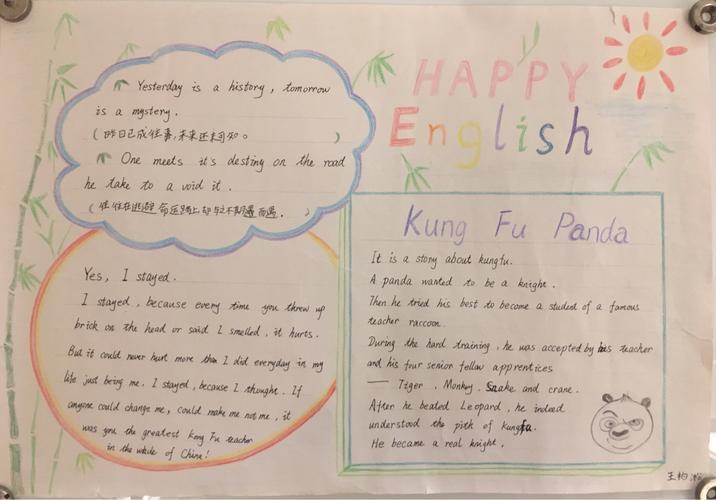 HAPPY
English
Yesterday is a history, tomorrow
is a mystery.
(昨日已成往事,未来还未可知。)
One meets it's destiny on the road
he take to a void it.
(往往在逃避命运路上,却与之不期遇而遇.)
Yes, I stayed.
I stayed, because every time you threw up
brick on the head or said I smelled, it hurts.
But it could never hurt more than I did everyday in my
life just being me. I stayed, because I thought. If
anyone could change me, could make me not me, it
was you the greatest kong Fu teacher
in the whide of China!
Kung Fu Panda
It is a story about kungfu.
A panda wanted to be a knight.
Then he tried his best to become a student of a famous
teacher raccoon.
During the hard training, he was accepted by his teacher
and his four senior fellow apprentices
—— Tiger, Monkey, Snake and crane.
After he beated Leopard, he indeed
understood the pith of kungfu.
He became a real knight.
王柏